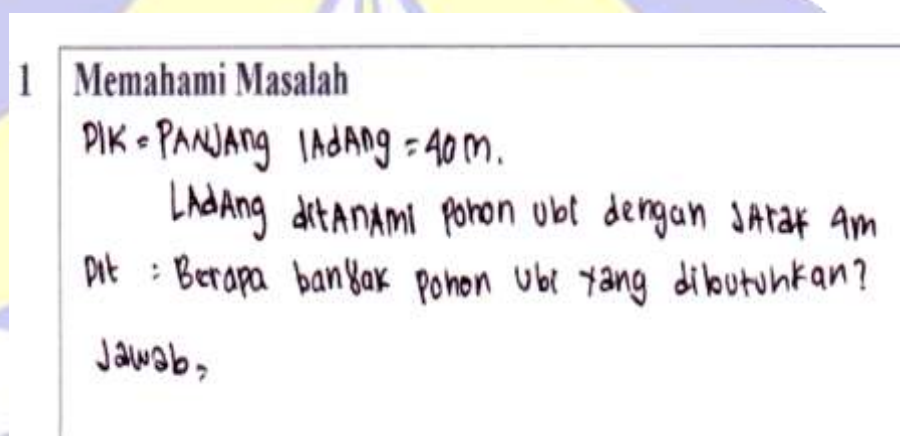 1 Memahami Masalah
DIK = PANJANg lAdANg = 40 m.
LAdAng ditAnAmi pohon ubi dengan JArak 4m
Dit : Berapa banyak pohon ubi yang dibutuhkan?
Jawab,